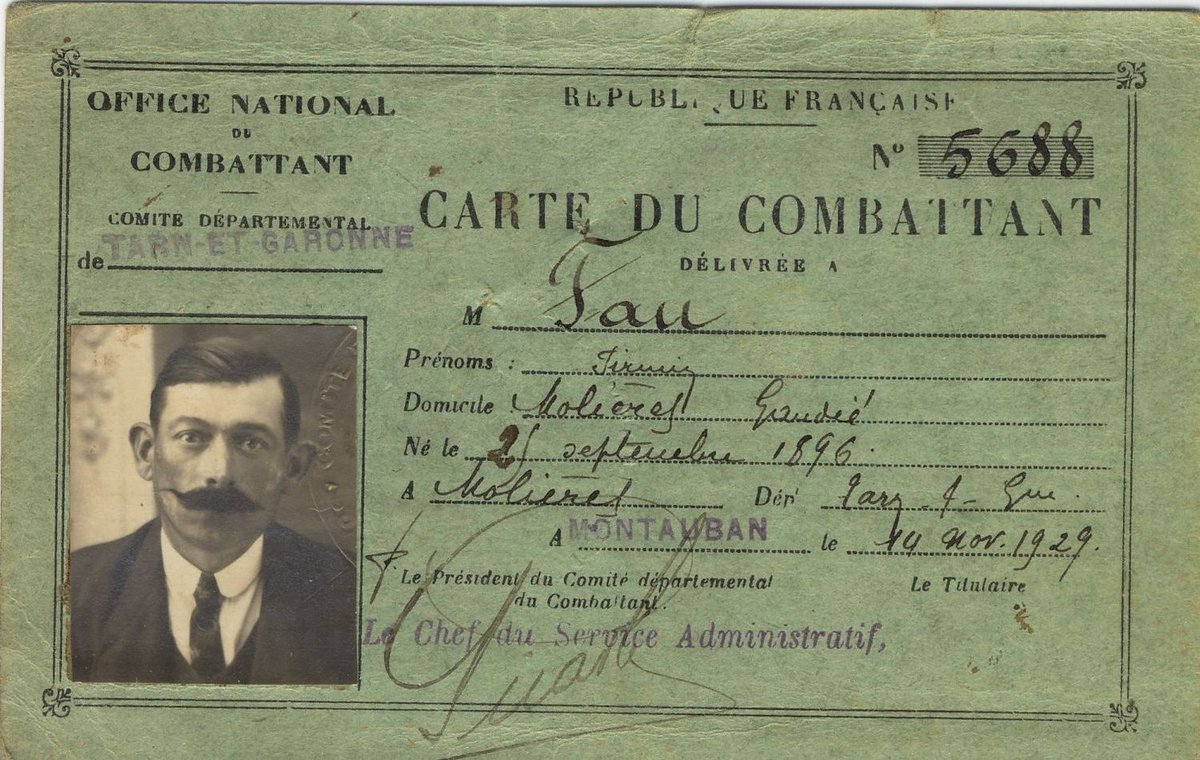 OFFICE NATIONAL
DU
COMBATTANT
COMITÉ DÉPARTEMENTAL
de TARN-ET-GARONNE
RÉPUBLIQUE FRANÇAISE
N° 5688
CARTE DU COMBATTANT
DÉLIVRÉE A
M Fau
Prénoms : Firmin
Domicile : Molières
Né le 25 septembre 1896.
A Molières Dépt Tarn
A MONTAUBAN le 14 Nov. 1929.
Le Président du Comité départemental
du Combattant.
Le Titulaire
Le Chef du Service Administratif,